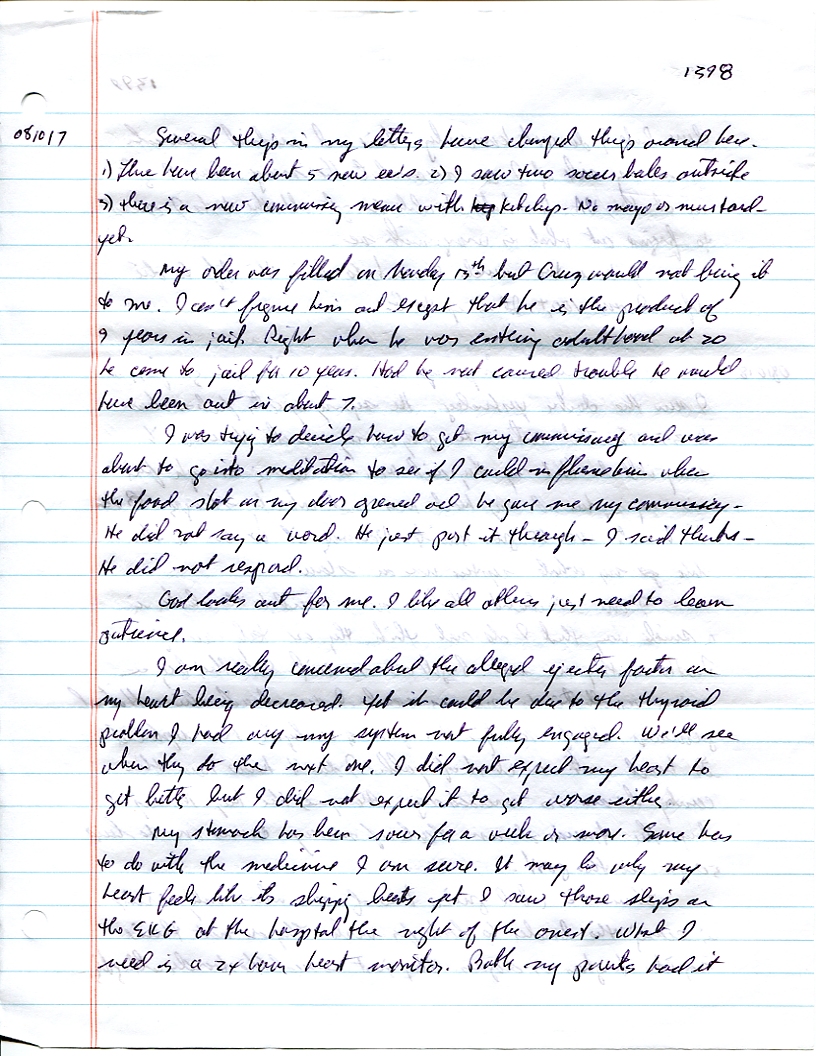 1398
081017 Several things in my letters have changed things around here.
1) There have been about 5 new ee's. 2) I saw two soccer balls outside
3) there is a new commissary menu with ketchup. No mayo or mustard
yet.
My order was filled on Monday 13th but Cruz would not bring it
to me. I can't figure him out except that he is the product of
9 years in jail. Right when he was entering adulthood at 20
he came to jail for 10 years. Had he not caused trouble he would
have been out in about 7.
I was trying to decide how to get my commissary and was
about to go into meditation to see if I could influence him when
the food slot on my door opened and he gave me my commissary -
He did not say a word. He just put it through - I said thanks -
He did not respond.
God looks out for me. I like all others just need to learn
patience.
I am really concerned about the alleged ejection factor on
my heart being decreased. Yet it could be due to the thyroid
problem I had any my system not fully engaged. We'll see
when they do the next one. I did not expect my heart to
get better but I did not expect it to get worse either.
My stomach has been sour for a week or more. Some has
to do with the medicine I am sure. It may be why my
heart feels like its skipping beats yet I saw those skips on
the EKG at the hospital the night of the arrest. What I
need is a 24 hour heart monitor. Both my parents had it